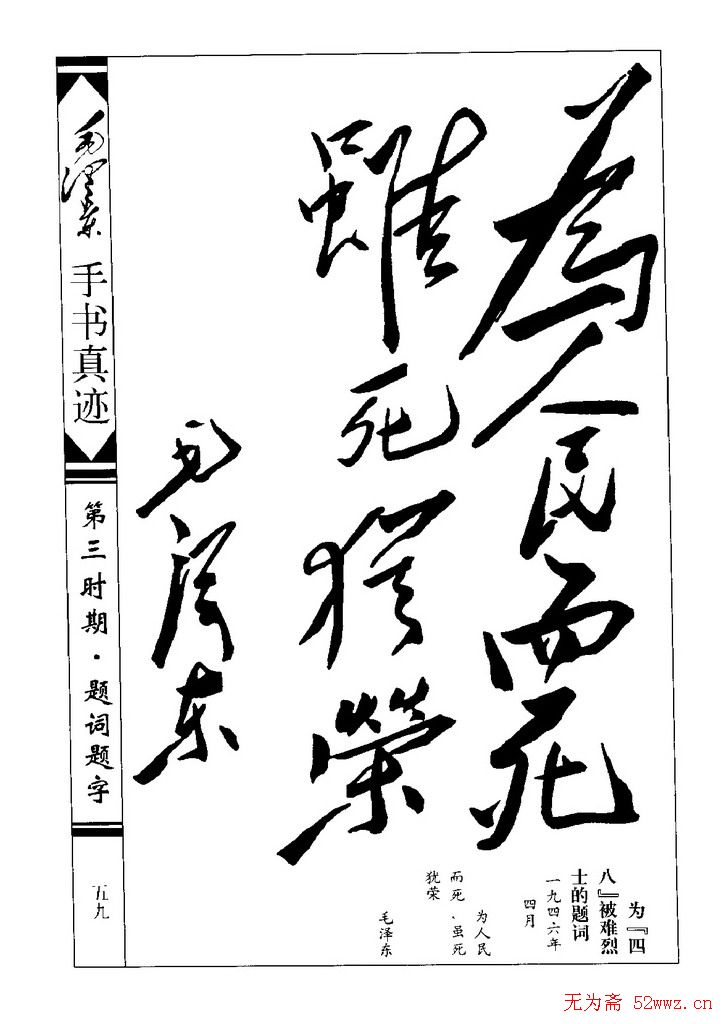 為人民而死
雖死猶榮
毛澤东
毛澤东
手书真迹
第三时期·题词题字
五九
为『四
八』被难烈
士的题词
一九四六年
四月
为人民
而死、虽死
犹荣
毛泽东
无为斋 52wwz.cn